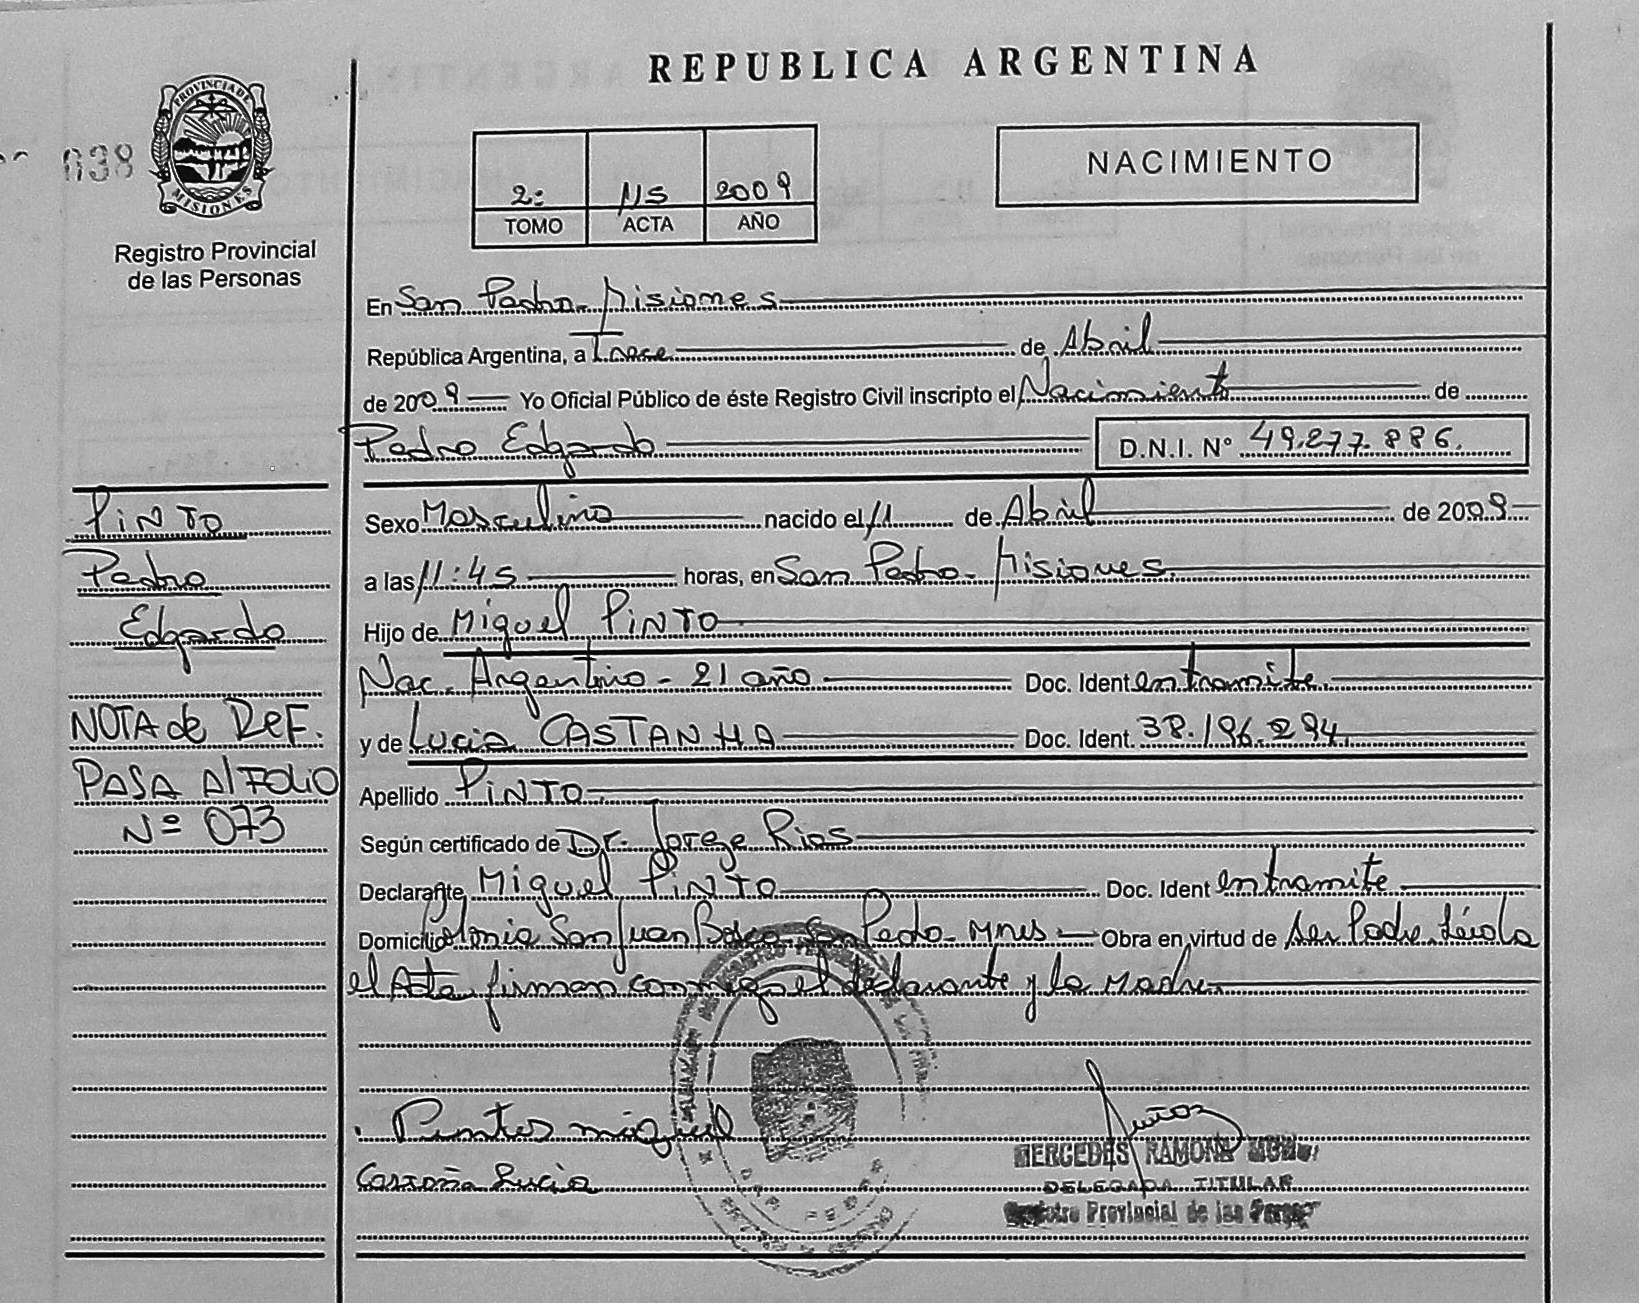 REPUBLICA ARGENTINA
038
PROVINCIA DE
MISIONES
Registro Provincial
de las Personas
2: 115 2009
TOMO ACTA AÑO
NACIMIENTO
En San Pedro - Misiones
República Argentina, a Trece de Abril
de 2009 Yo Oficial Público de éste Registro Civil inscripto el Nacimiento de
Pedro Edgardo D.N.I. Nº 49.277.886.
Sexo Masculino nacido el 11 de Abril de 2009
a las 11:45 horas, en San Pedro - Misiones.
Hijo de Miguel PINTO
Nac. Argentino - 21 año Doc. Ident en tramite.
y de Lucia CASTANHA Doc. Ident. 38.196.294.
Apellido PINTO
Según certificado de Dr. Jorge Rios
Declarante Miguel PINTO Doc. Ident en tramite
Domicilio Colonia San Juan Bosco San Pedro - Mnes Obra en virtud de ser Padre. Léida
el Acta firman conmigo el declarante y la Madre
PINTO
Pedro
Edgardo
NOTA de REF.
PASA Al FOLIO
Nº 073
miguel
Lucia
MERCEDES RAMONA
DELEGADA TITULAR
Registro Provincial de las